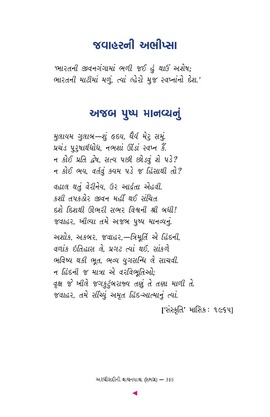 જવાહરની અભીપ્સા
'ભારતની જીવનગંગામાં ભળી જઈ હું થાઉં અશેષ;
ભારતની માટીમાં મળું, ત્યાં લ્હેરો મુજ સ્વપ્નાંનો દેશ.'
અજબ પુષ્પ માનવ્યનું
મુલાયમ ગુલાબ—શું હૃદય, ધૈર્ય મેરુ સમું.
પ્રચંડ પુરુષાર્થધોધ, નભશાં ઊંડાં સ્વપ્ન કૈં.
ન કોઈ પ્રતિ દ્વેષ, સત્ય પછી છોડવું શે પડે?
ન કોઈ ભય, વર્તવું ક્યમ પડે જ હિંસાથી તો?
વહાલ થતું વેરીનેય, ઉર આર્દ્રતા એહવી.
કશી તપકઠોર જીવન મહીં થઈ સંચિત
દશે દિશથી ઊભરી સભર વિશ્વની શ્રી બધી!
જવાહર, ખીલ્યા તમે અજબ પુષ્પ માનવ્યનું.
અશોક, અકબર, જવાહર,—ત્રિમૂર્તિ એ હિંદની,
વળાંક ઇતિહાસ લે, પ્રગટ ત્યાં થઈ, સાંકળે
ભવિષ્ય થકી ભૂત, ભવ્ય યુગસન્ધિ લે સાચવી.
ન હિંદની જ માત્રા એ વરવિભૂતિઓ;
વૃક્ષ જે ખીલે જગકુટુંબરાજ્ય તણું તે તણા માળી તે.
જવાહર, તમે સીંચ્યું અમૃત હિંદ-આત્માનું ત્યાં.
['સંસ્કૃતિ' માસિક: ૧૯૬૫]